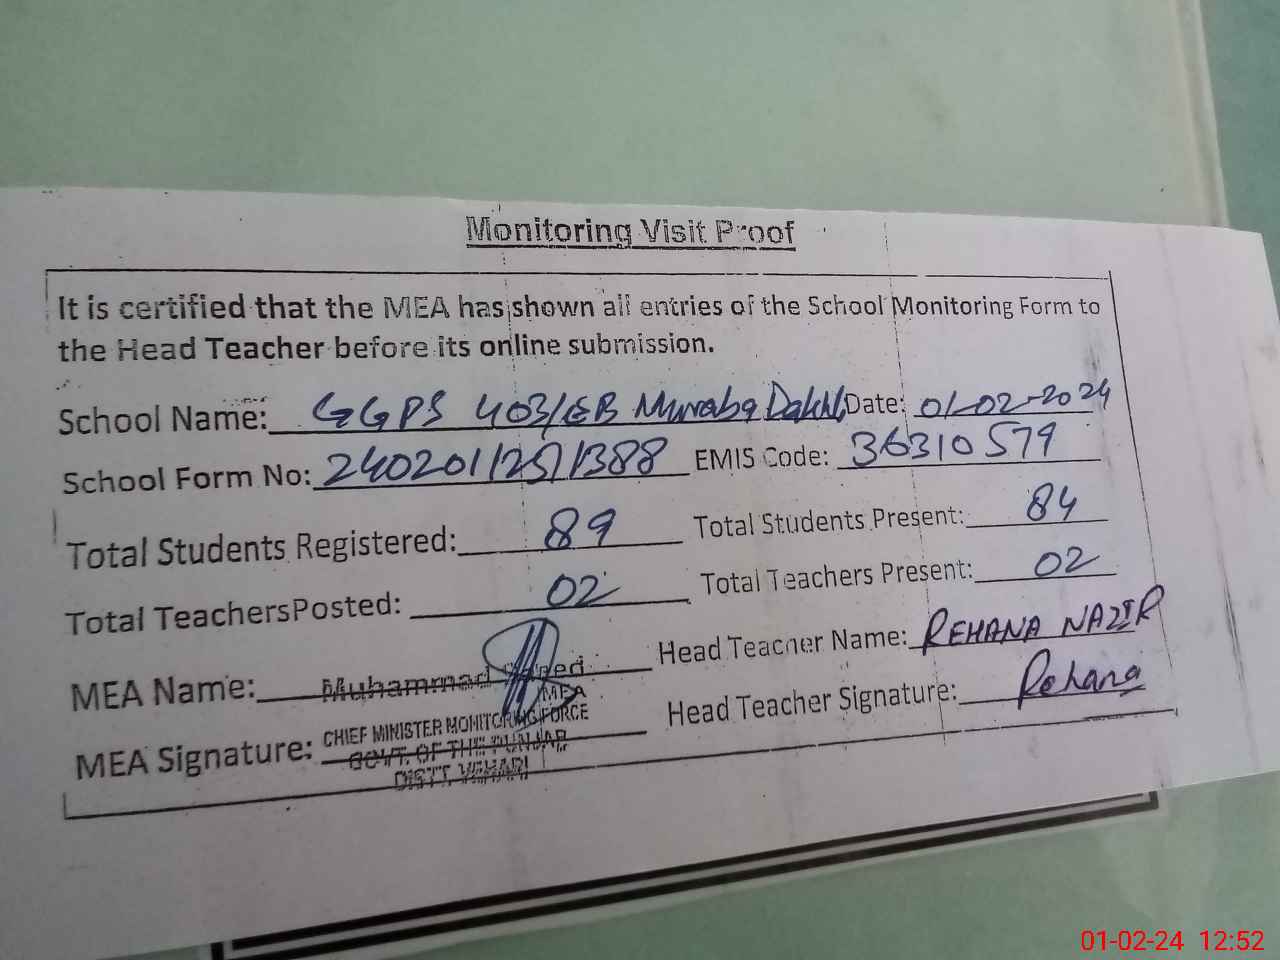 Monitoring Visit Proof
It is certified that the MEA has shown all entries of the School Monitoring Form to
the Head Teacher before its online submission.
School Name: GGPS 403/EB Muraba Dakhli Date: 01-02-2024
School Form No: 240201125/1388 EMIS Code: 36310579
Total Students Registered: 89 Total Students Present: 84
Total TeachersPosted: 02 Total Teachers Present: 02
MEA Name: Muhammad Head Teacher Name: REHANA NAZIR
MEA
MEA Signature: CHIEF MINISTER MONITORING FORCE Head Teacher Signature: Rehana
GOVT. OF THE PUNJAB
DISTT. VEHARI
01-02-24 12:52